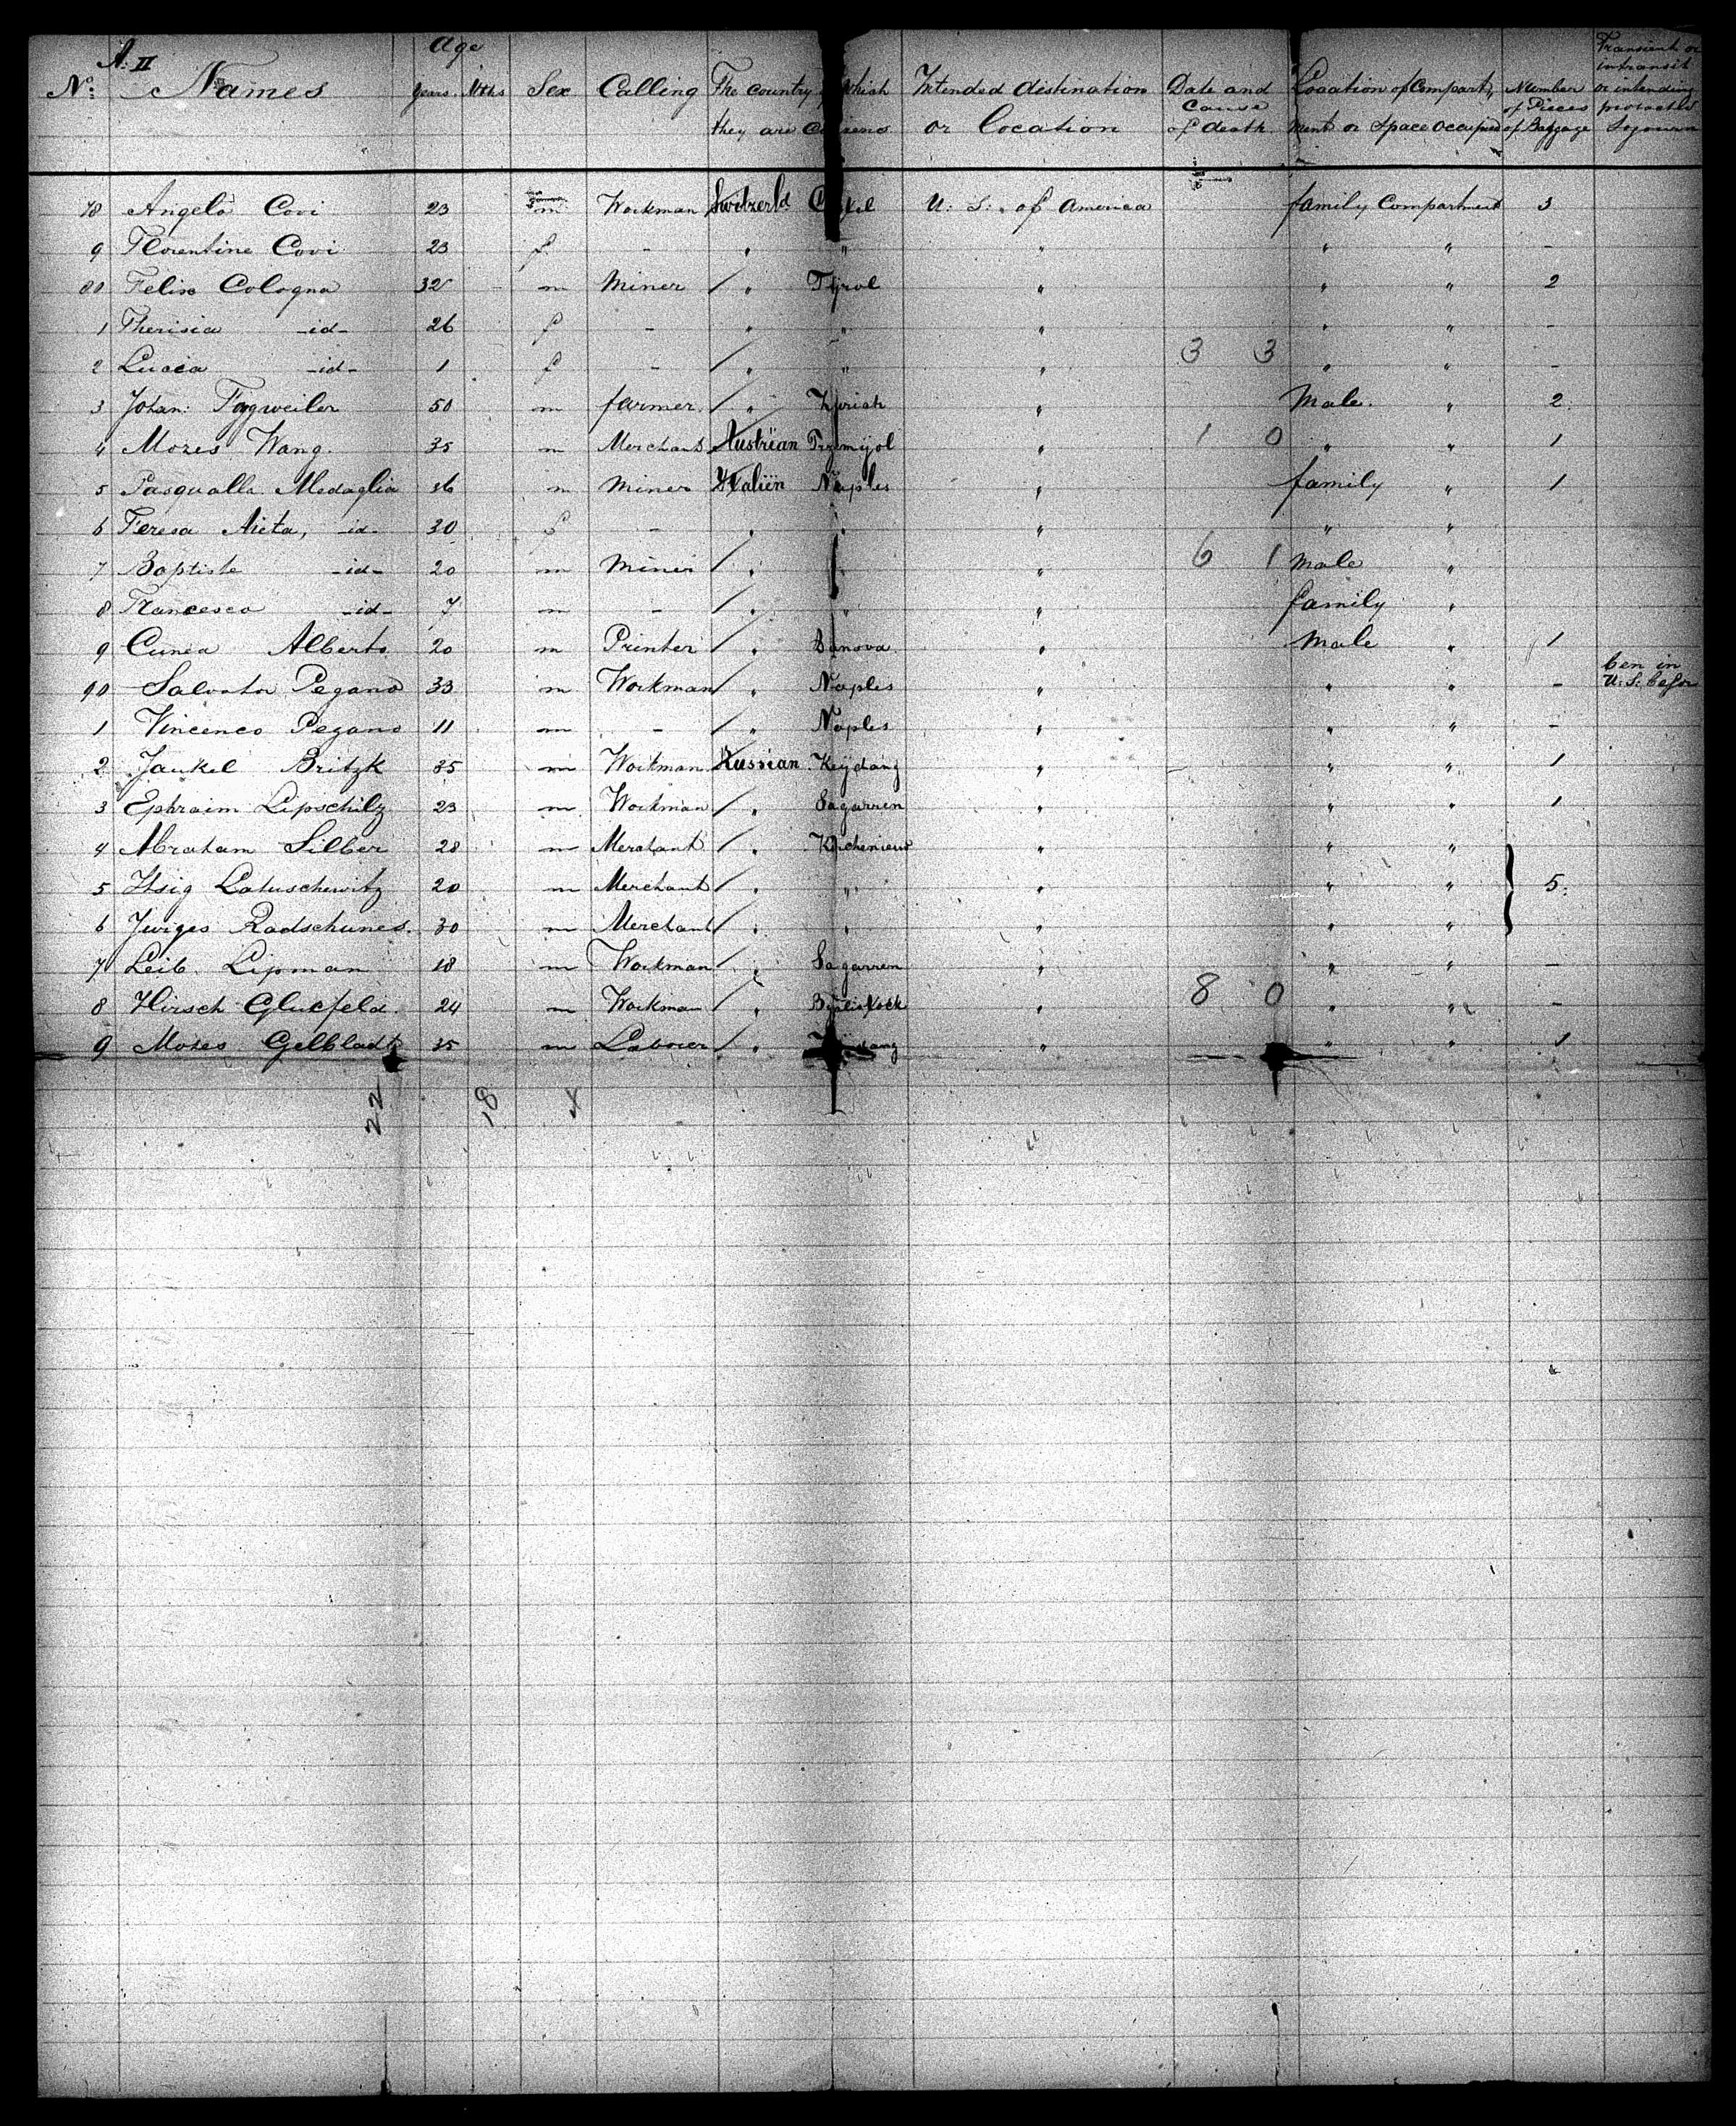 A. II
Nº: Names Age Years. Mths Sex Calling The country of which they are citizens Intended distination or location Date and cause of death Location of Compart, ment or Space Occupied Number of Pieces of Baggage Transient or in transit or intending protracted Sojourn
78 Angelo Covi 23 m Workman Switzerld. U. S. of America family Compartment 3
9 Florentine Covi 23 f - " " " " " -
80 Felix Cologna 32 m Miner " Tyrol " " " 2
1 Therisia -id- 26 f - " " " " " -
2 Lucia -id- 1 f - " " " 3 3 " " -
3 Johan: Tagweiler 50 m farmer " Zurich " Male. " 2.
4 Mozes Wang. 35 m Merchant Austrian " 1 0 " " 1
5 Pasqualla Medaglia 36 m Miner Italiën Naples " family " 1
6 Teresa Aieta, -id- 30 f - " " " " "
7 Baptiste -id- 20 m Miner " " " 6 1 Male "
8 Francesco -id- 7 m - " " " family "
9 Cunéa Alberto 20 m Printer " " Male " 1
90 Salvator Pegano 33 m Workman " Naples " " " - ben in U. S. befor
1 Vincenco Pegano 11 m - " Naples " " " -
2 Jankel Britzk 35 m Workman Russian Keÿdang " " " 1
3 Ephraim Lipschilz 23 m Workman " Sagarren " " " 1
4 Abraham Silber 28 m Merchant " " " "
5 Itsig Latuschewitz 20 m Merchant " " " " " 5.
6 Jwiges Radschunes. 30 m Merchant " " " " "
7 Leib Lipman 18 m Workman " Sagarren " " " -
8 Hirsch Glucfeld. 24 m Workman " " 8 0 " " -
9 Mozes Gelbladt 35 m Laborer " " " " 1
22 18 4